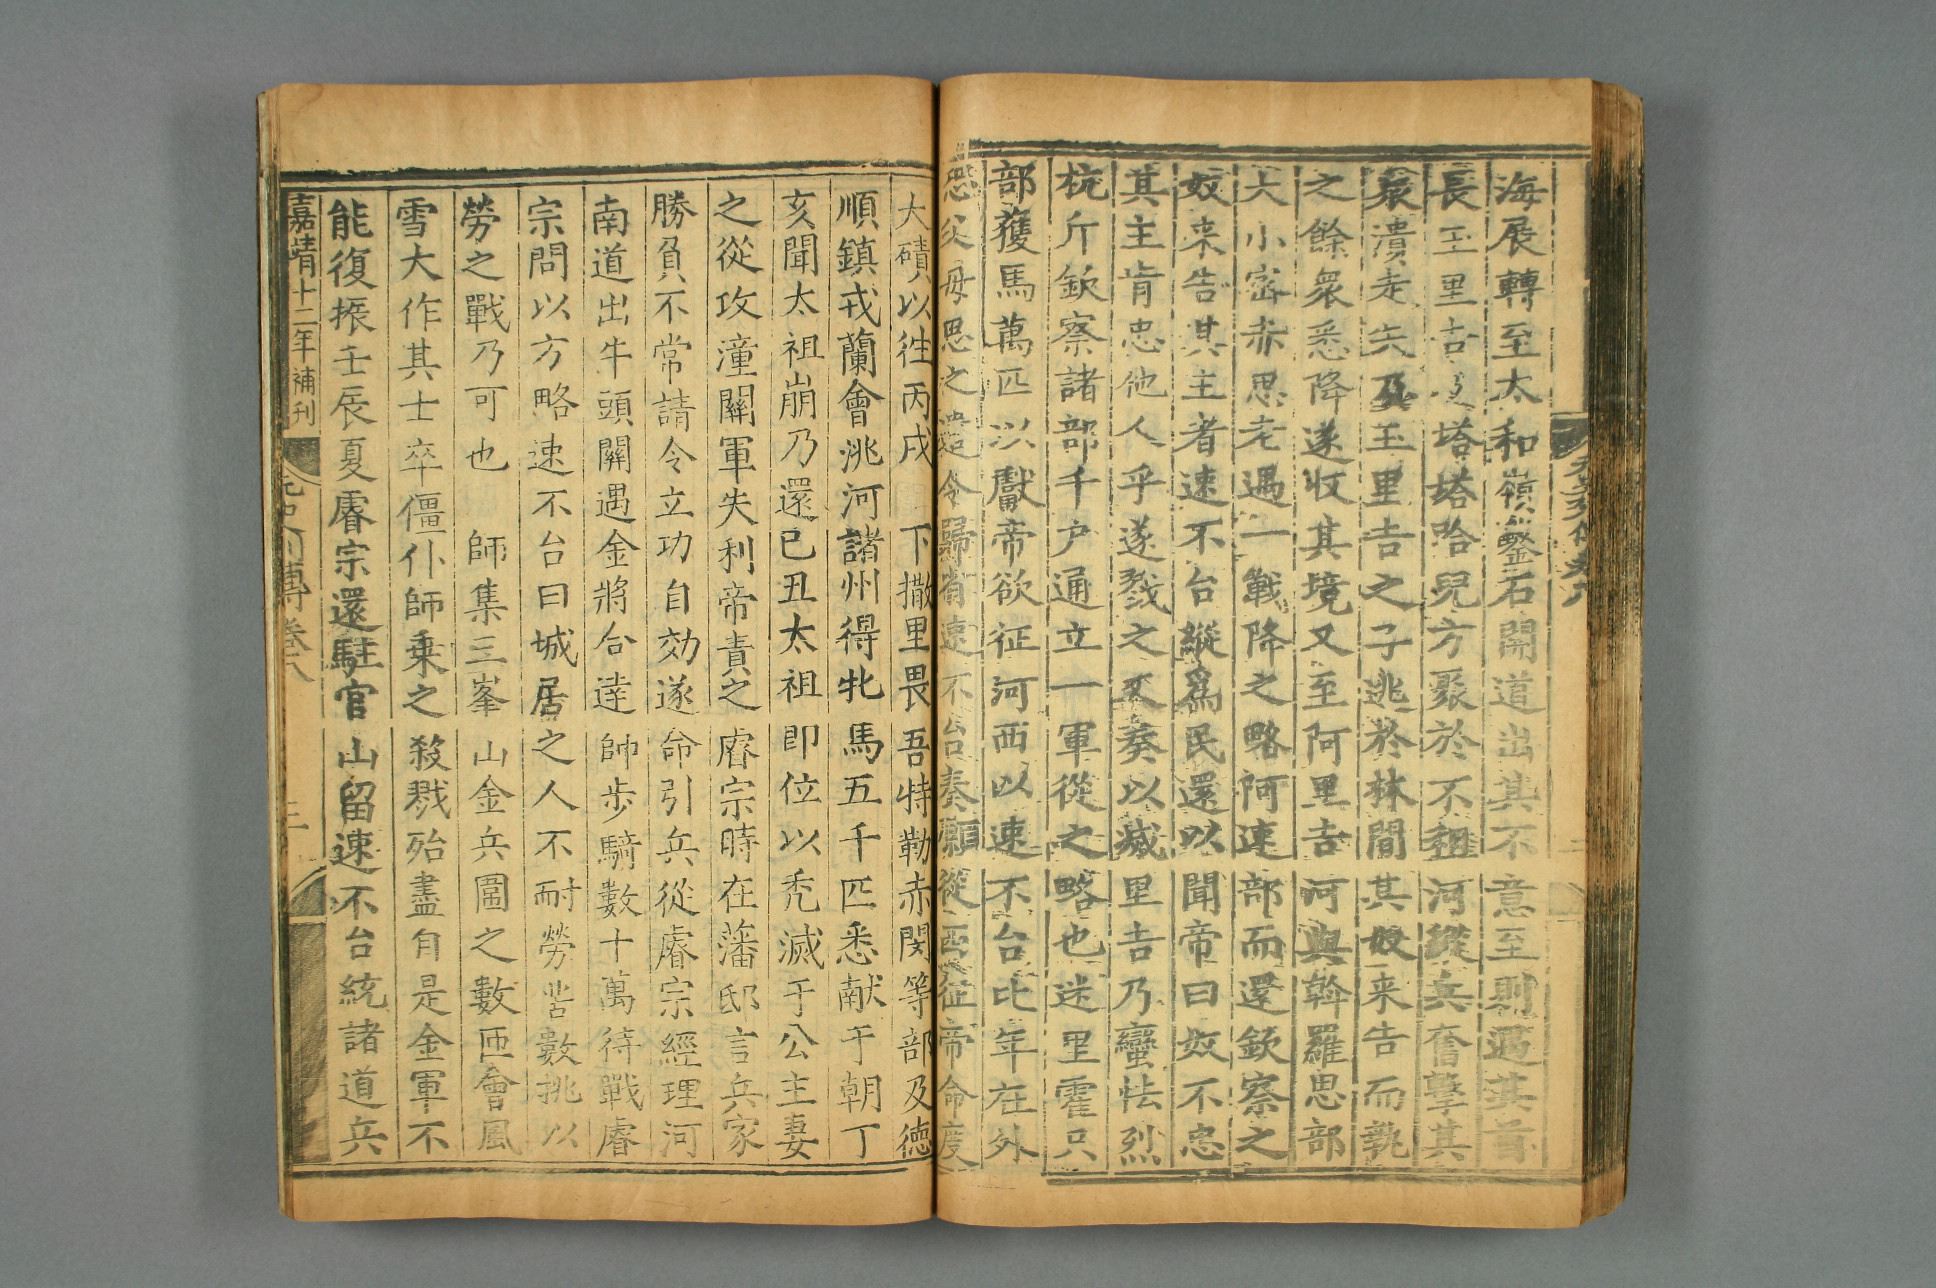 海展轉至太和嶺鑿石開道出其不意至則遇其酋
長玉里吉及塔塔哈兒方聚於不租河縱兵奮擊其
衆潰走矢及玉里吉之子逃於林間其奴来告而執
之餘衆悉降遂收其境又至阿里吉河與斡羅思部
大小密赤思老遇一戰降之略阿速部而還欽察之
奴来告其主者速不台縱爲民還以聞帝曰奴不忠
其主肯忠他人乎遂戮之又奏以滅里吉乃蠻怯烈
杭斤欽察諸部千户通立一軍從之略也迷里霍只
部獲馬萬匹以獻帝欲征河西以速不台比年在外
恐父母思之遣令歸省速不台奏願從西征帝命度
大磧以徃丙戌 下撒里畏吾特勒赤閔等部及德
順鎮戎蘭會洮河諸州得牝馬五千匹悉献于朝丁
亥聞太祖崩乃還己丑太祖即位以禿滅干公主妻
之從攻潼關軍失利帝責之睿宗時在藩邸言兵家
勝負不常請令立功自効遂命引兵從睿宗經理河
南道出牛頭關遇金將合達帥步騎數十萬待戰睿
宗問以方略速不台曰城居之人不耐勞苦數挑以
勞之戰乃可也 師集三峯山金兵圍之數匝會風
雪大作其士卒僵仆師乗之殺戮殆盡自是金軍不
能復振壬辰夏睿宗還駐官山留速不台統諸道兵
嘉靖十二年補刊
元史列傳卷八